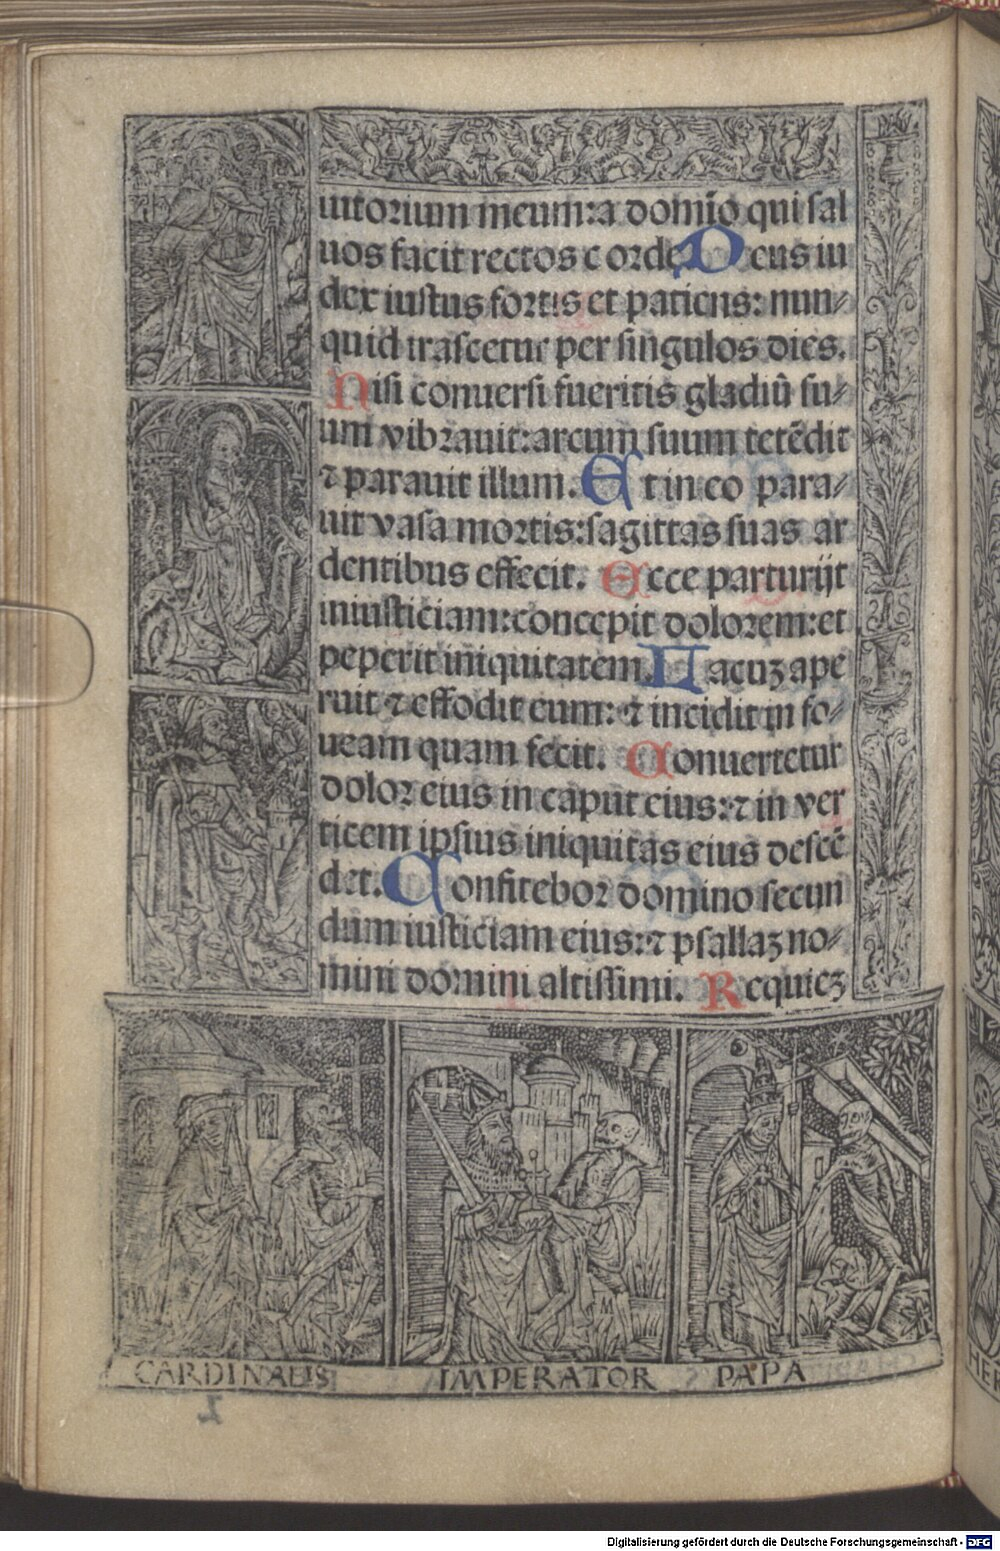 iutorium meum:a domīo qui sal
uos facit rectos corde Deus iu
dex iustus fortis et patiens: nun⸗
quid irascetur per singulos dies.
Nisi conuersi fueritis gladiū su⸗
um vibrauit:arcum suum tetēdit
⁊ parauit illum. Et in eo para⸗
uit vasa mortis:sagittas suas ar
dentibus effecit. Ecce parturijt
iniusticiam:concepit dolorem:et
peperit iniquitatem. Lacuꝫ ape
ruit ⁊ effodit eum: ⁊ incidit in fo⸗
ueam quam fecit. Conuertetur
dolor eius in caput eius:⁊ in ver
ticem ipsius iniquitas eius descē
det. Confitebor domino secun
dum iusticiam eius:⁊ psallaꝫ no⸗
mini domini altissimi. Requieꝫ
CARDINALIS IMPERATOR PAPA
HER
Digitalisierung gefördert durch die Deutsche Forschungsgemeinschaft - DFG